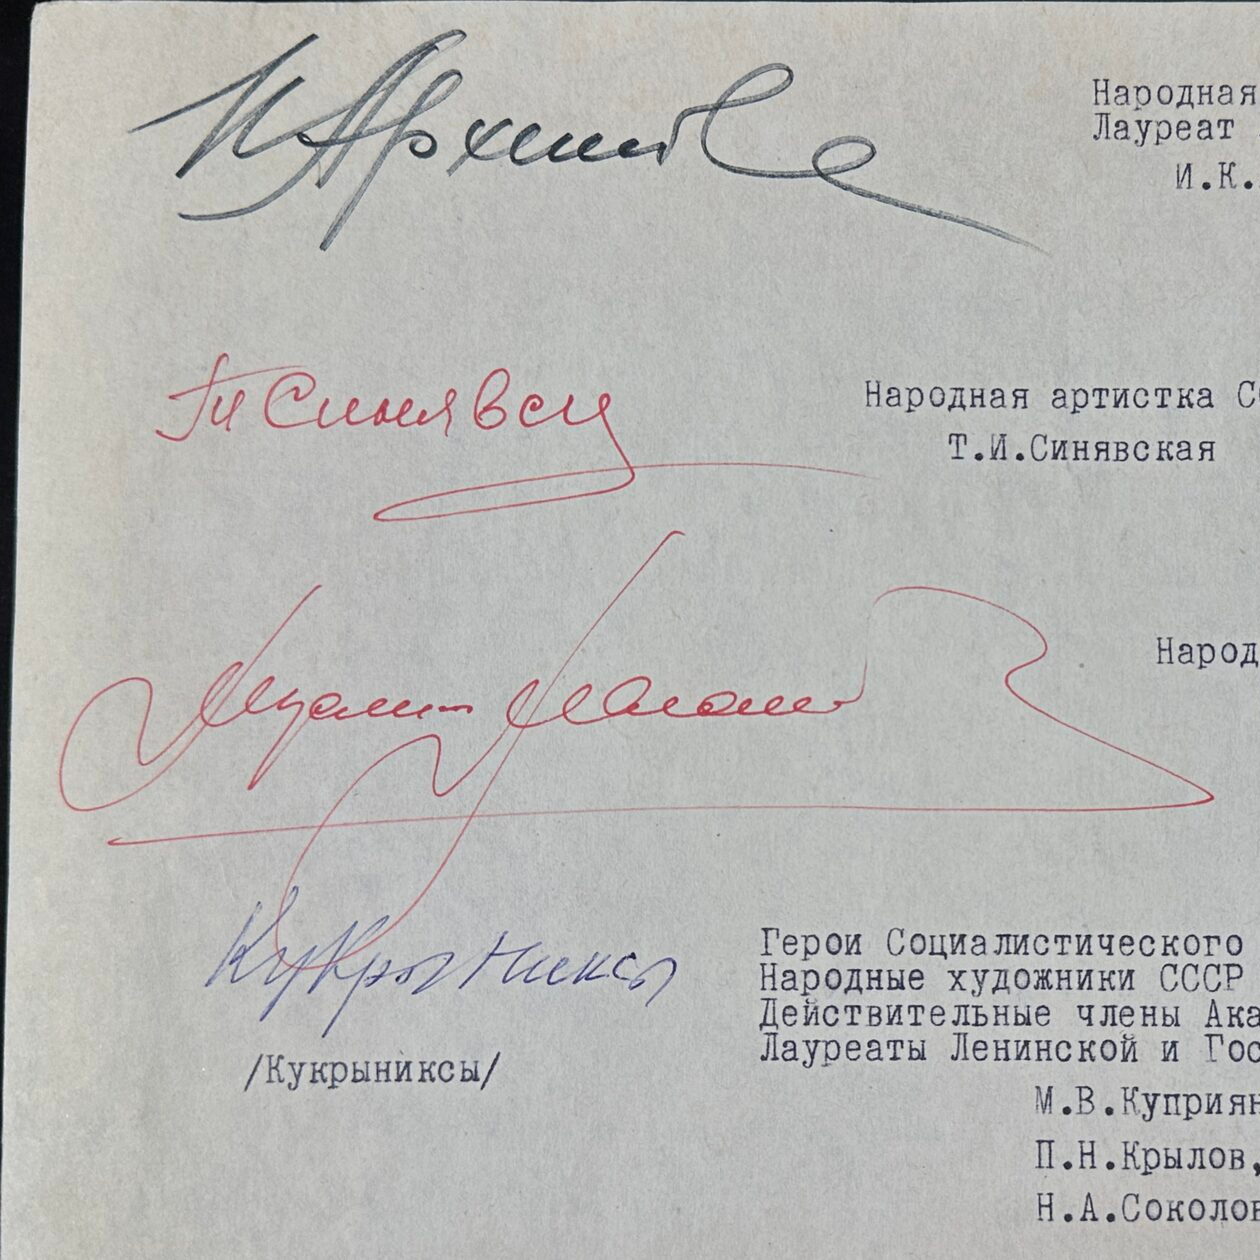 И Архипова
Народная
Лауреат
И.К.
Т Синявск
Народная артистка СС
Т.И.Синявская
Муслим Магомаев
Народ
Кукрыниксы
/Кукрыниксы/
Герои Социалистического
Народные художники СССР
Действительные члены Ака
Лауреаты Ленинской и Гос
М.В.Куприян
П.Н.Крылов,
Н.А.Соколов